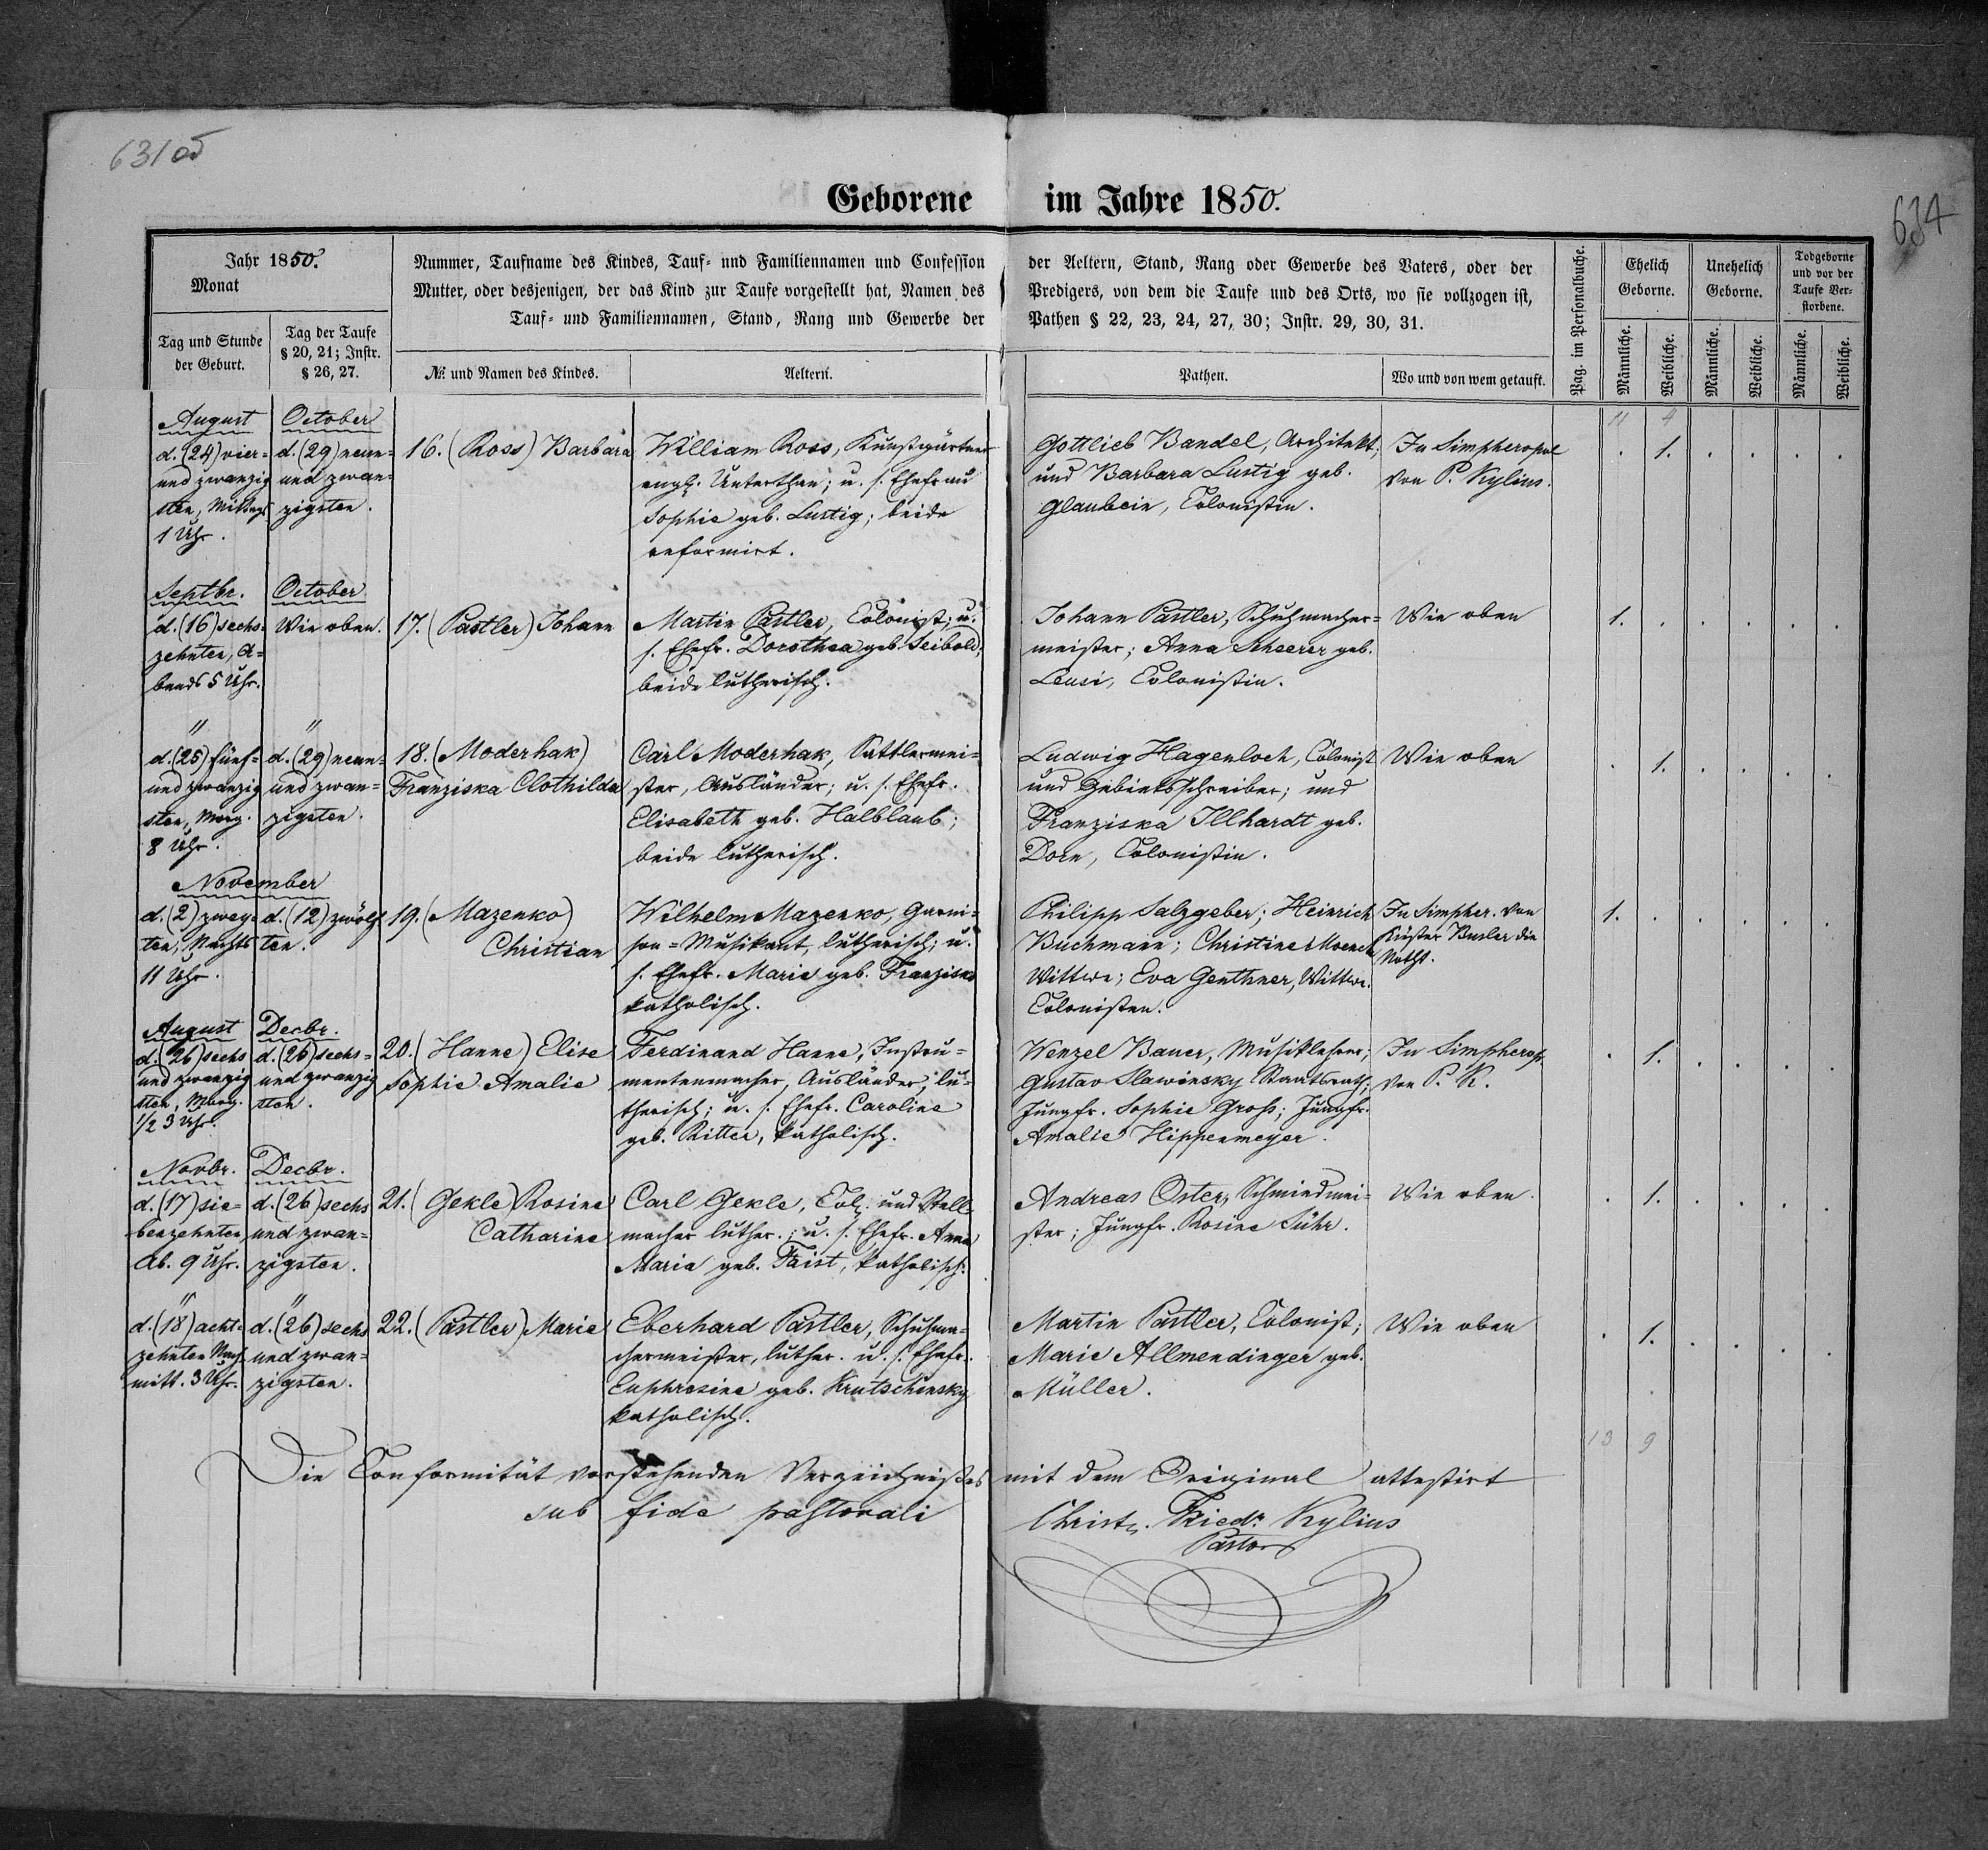 631 об
634
Geborene im Jahre 1850.
Jahr 1850.
Monat
Tag und Stunde
der Geburt.
Tag der Taufe
§ 20, 21; Instr.
§ 26, 27.
Nummer, Taufname des Kindes, Tauf- und Familiennamen und Confession der Aeltern, Stand, Rang oder Gewerbe des Vaters, oder der
Mutter, oder desjenigen, der das Kind zur Taufe vorgestellt hat, Namen des Predigers, von dem die Taufe und des Orts, wo sie vollzogen ist,
Tauf- und Familiennamen, Stand, Rang und Gewerbe der Pathen § 22, 23, 24, 27, 30; Instr. 29, 30, 31.
№. und Namen des Kindes.
Aeltern.
Pathen.
Wo und von wem getauft.
Pag. im Personalbuche.
Ehelich
Geborne.
Unehelich
Geborne.
Todgeborne
und vor der
Taufe Ver-
storbene.
Männliche.
Weibliche.
Männliche.
Weibliche.
Männliche.
Weibliche.
11 4
August
d. (24) vier-
und zwanzig
sten, Mittags
1 Uhr.
October
d. (29) neun-
und zwan-
zigsten.
16. (Ross) Barbara
William Ross, Kunstgärtner
engl. Unterthan; u. s. Ehefrau
Sophie geb. Lustig; beide
reformirt.
Gottlieb Bandel, Architekt;
und Barbara Lustig geb.
Glaubein, Colonistin.
In Simpheropol
von P. Kylius.
. 1. . . . .
Septbr.
d. (16) sechs-
zehnten, A-
bends 5 Uhr.
October
Wie oben.
17. (Pastler) Johann
Martin Pastler, Colonist; u.
s. Ehefr. Dorothea geb. Seibold,
beide lutherisch.
Johann Pastler, Schuhmacher-
meister; Anna Scheerer geb.
Leusi, Colonistin.
Wie oben
1. . . . . .
"
d. (25) fünf-
und zwanzig
sten, Morg.
8 Uhr.
"
d. (29) neun-
und zwan-
zigsten.
18. (Moderhak)
Franziska Clothilda
Carl Moderhak, Sattlermei-
ster, Ausländer; u. s. Ehefr.
Elisabeth geb. Halblaub;
beide lutherisch.
Ludwig Hagenloch, Colonist
und Gebietsschreiber; und
Franziska Illhardt geb.
Dorn, Colonistin.
Wie oben
. 1. . . . .
November
d. (2) zwey-
ten, Nachts
11 Uhr.
d. (12) zwölf
ten.
19. (Mazenko)
Christian
Wilhelm Mazenko, Garni-
son-Musikant, lutherisch; u.
s. Ehefr. Marie geb. Franzisko
katholisch.
Philipp Salzgeber; Heinrich
Buchmann; Christine Moench
Wittwe; Eva Genthner, Wittwe.
Colonisten.
In Simpher. von
Küster Busler die
Notht.
1. . . . . .
August
d. (26) sechs
und zwanzig
sten, Morg.
1/2 3 Uhr.
Decbr.
d. (26) sechs-
und zwanzig
sten.
20. (Hanne) Elise
Sophie Amalie
Ferdinand Hanne, Instru-
mentenmacher, Ausländer, lu-
therisch; u. s. Ehefr. Caroline
geb. Ritter, katholisch.
Wenzel Bauer, Musiklehrer;
Gustav Slawinsky Staatsrath;
Jungfr. Sophie Groß; Jungfr.
Amalie Hippenmeyer.
In Simpherop.
von P. K.
. 1. . . . .
Novbr.
d. (17) sie-
benzehnten
Ab. 9 Uhr.
Decbr.
d. (26) sechs
und zwan-
zigsten.
21. (Gekle) Rosine
Catharine
Carl Gekle, Col. und Stell-
macher luther.; u. s. Ehefr. Anna
Maria geb. Faist, katholisch.
Andreas Oster, Schmiedmei-
ster; Jungfr. Rosine Sühr.
Wie oben.
. 1. . . . .
"
d. (18) acht-
zehnten Nach-
mitt. 3 Uhr.
"
d. (26) sechs
und zwan-
zigsten.
22. (Pastler) Marie
Eberhard Pastler, Schuhma-
chermeister, luther. u. s. Ehefr.
Euphrosine geb. Krutschinsky
katholisch.
Martin Pastler, Colonist;
Marie Allmendinger geb.
Müller.
Wie oben
. 1. . . . .
13 9
Die Conformität vorstehenden Verzeichnißes mit dem Original attestirt
sub fide pastorali
Christ. Friedr. Kylius
Pastor